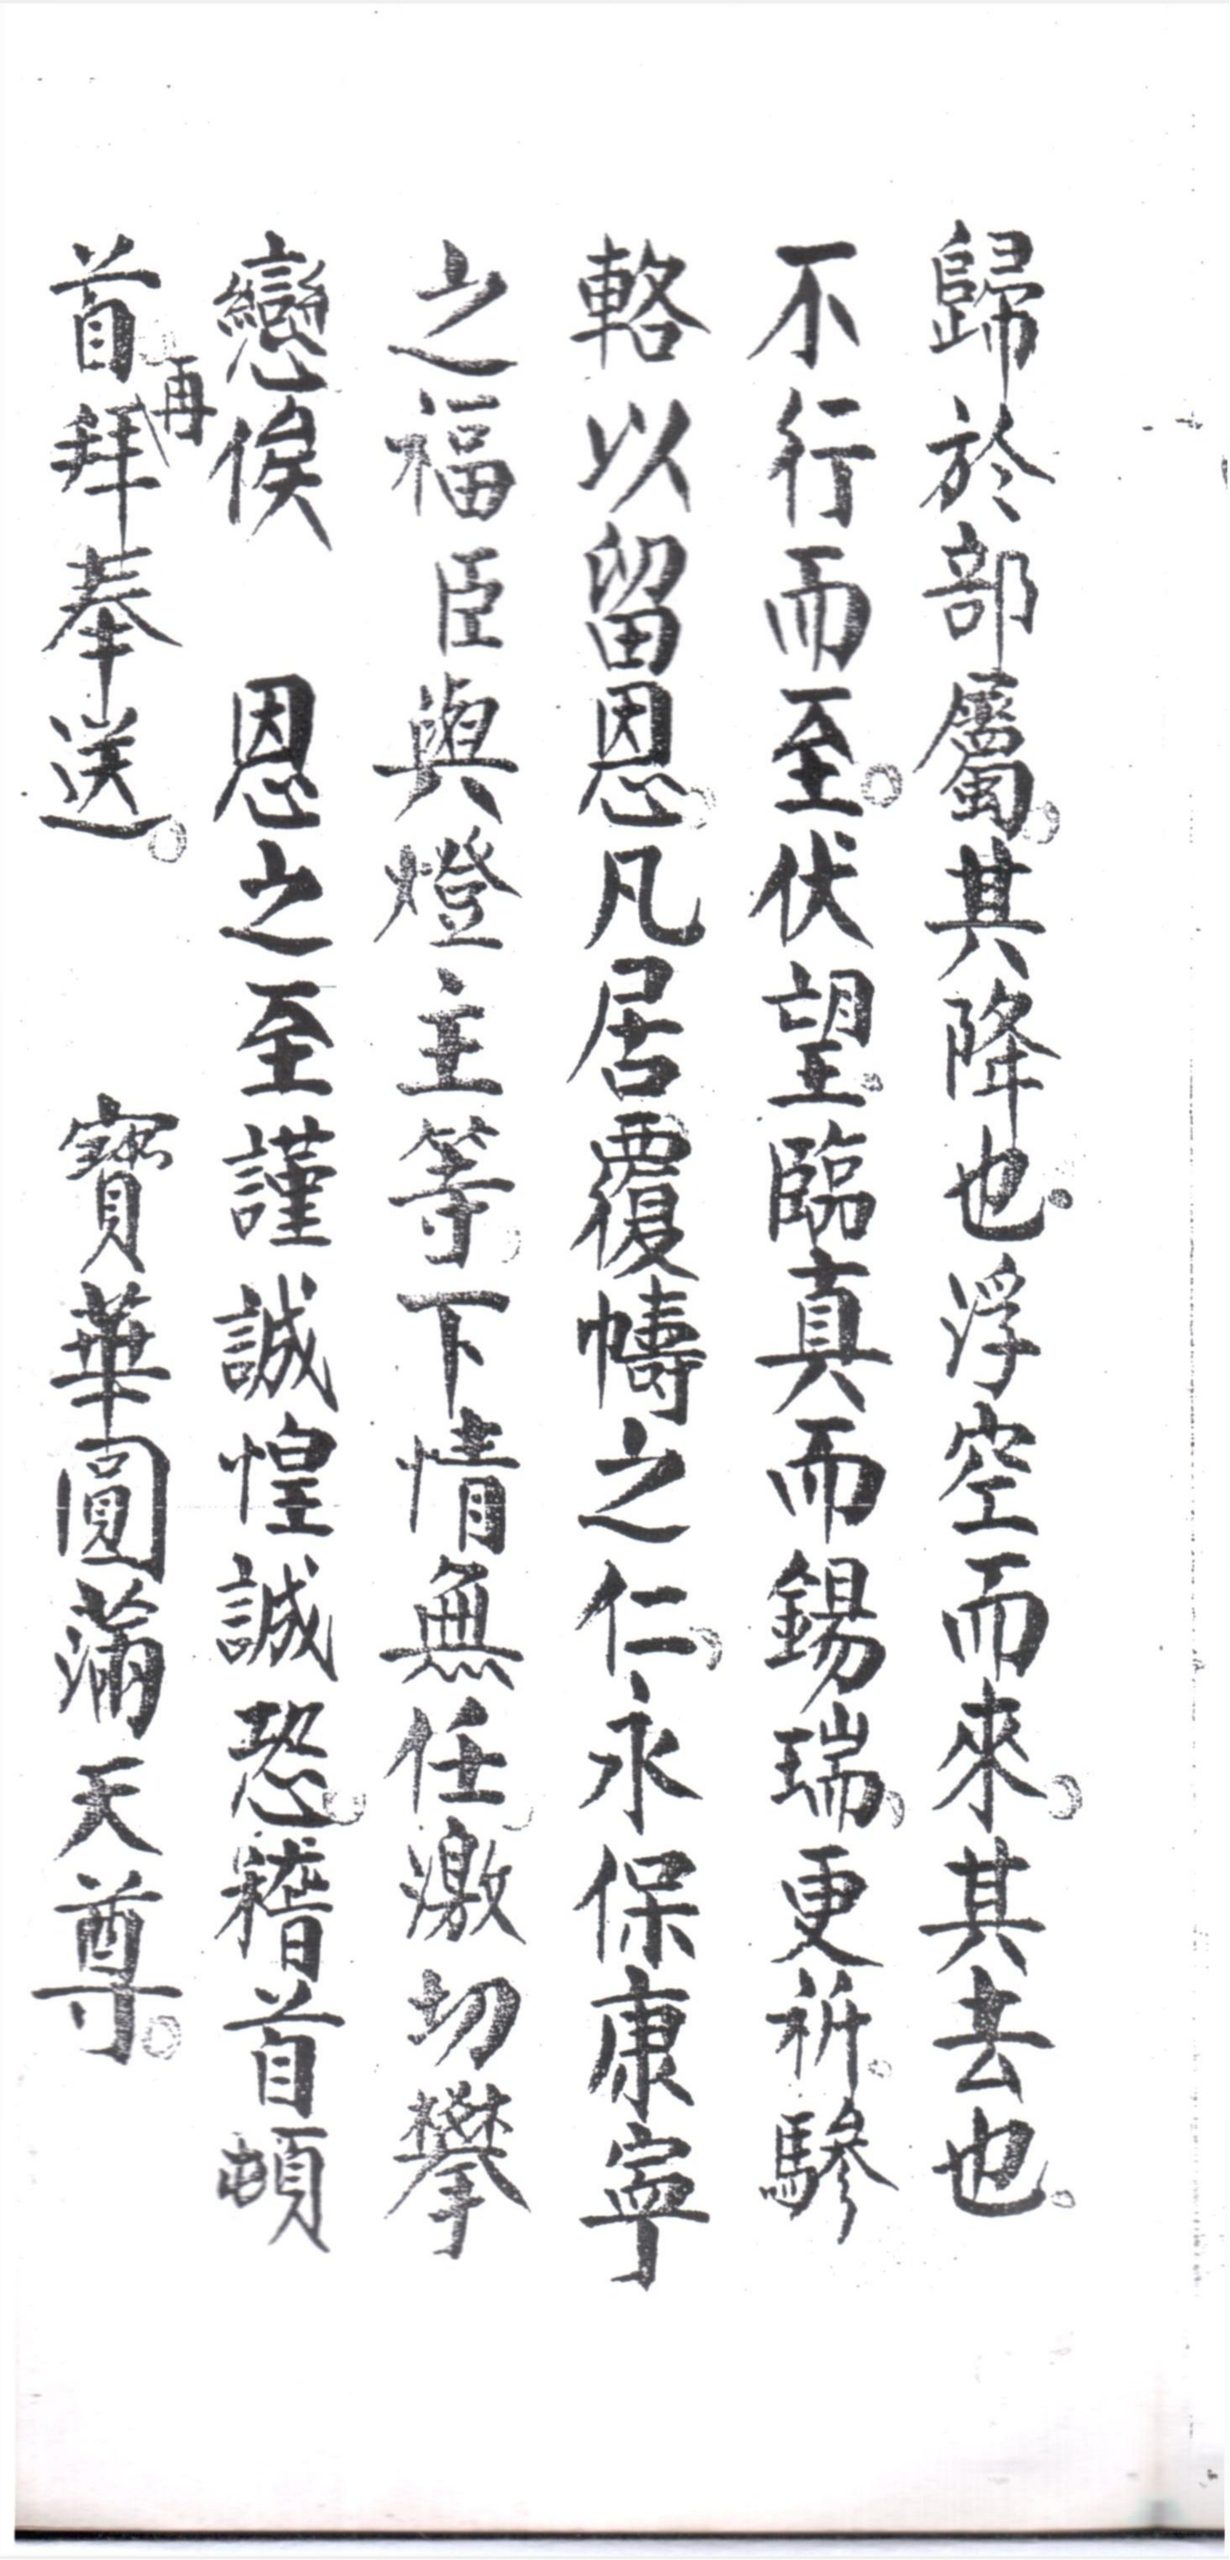 歸於部屬。其降也。浮空而來。其去也。
不行而至。伏望。臨真而錫瑞。更祈。驂
輅以留恩。凡居覆幬之仁。永保康寧
之福臣與燈主等。下情無任。激切攀
戀俟　恩之至謹誠惶誠恐。稽首頓
首再拜奉送。　寶華圓滿天尊。